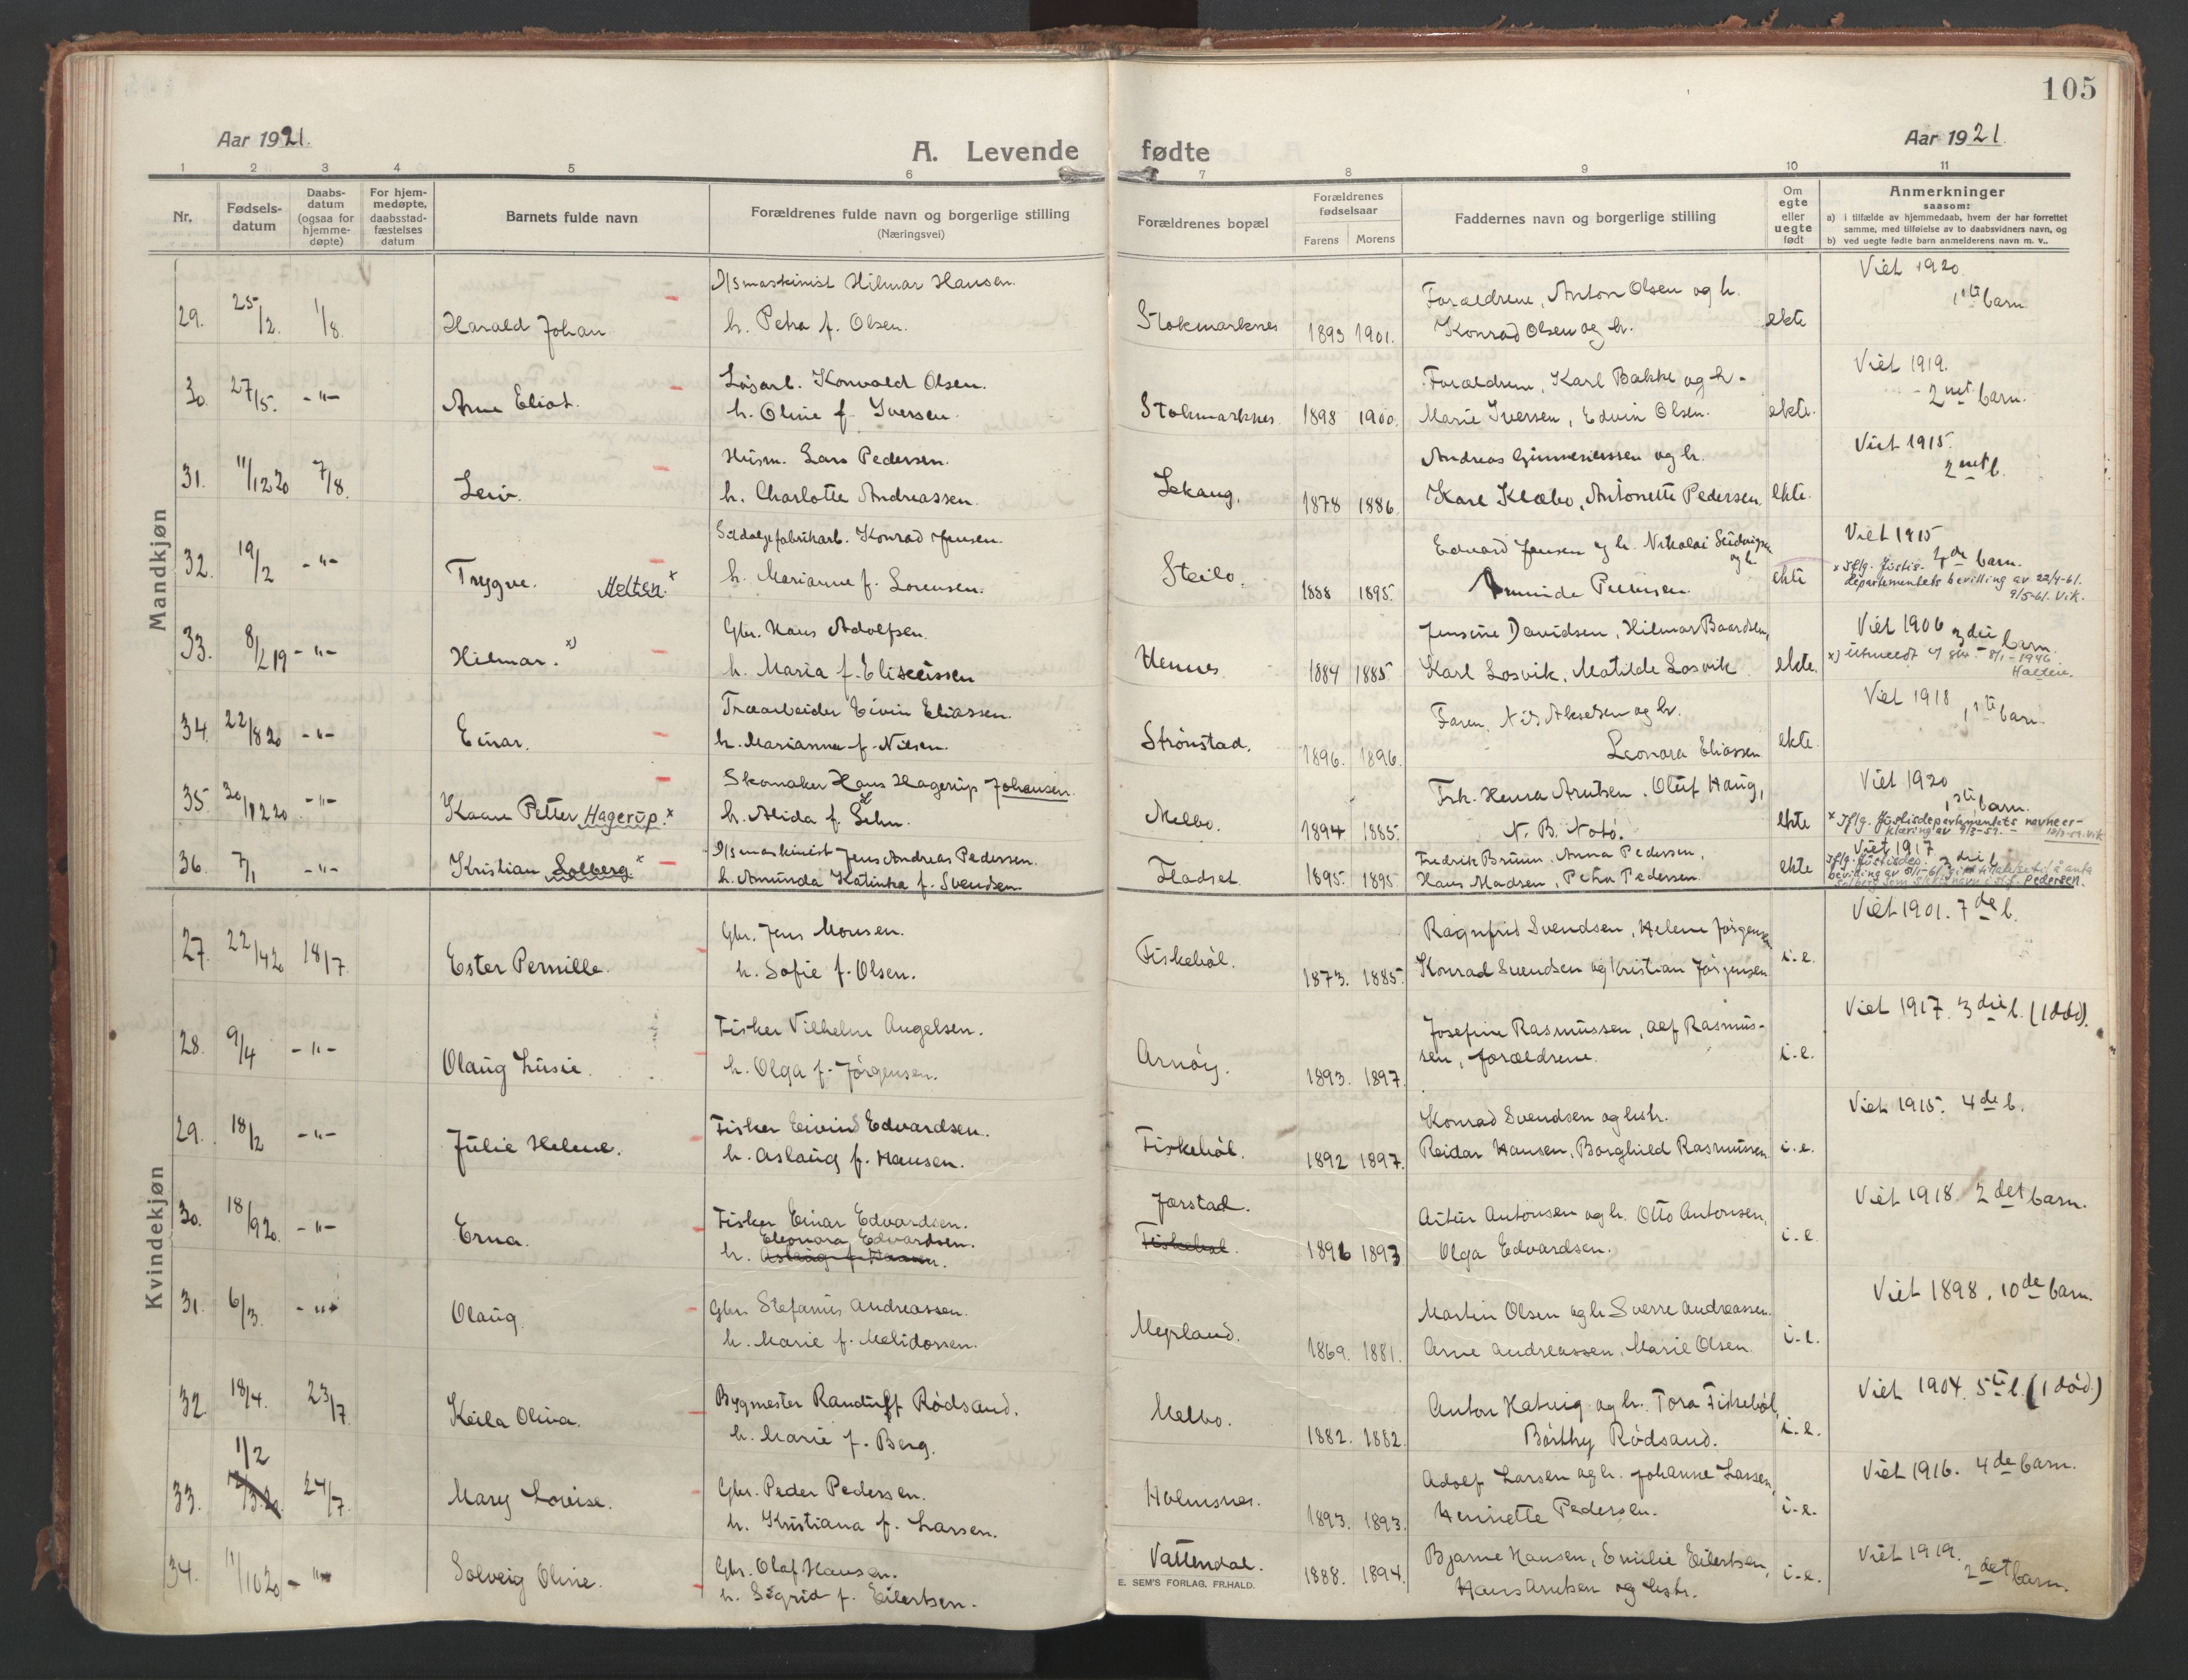 105
Aar 1921.
A. Levende fødte
Aar 1921.
1 2 3 4 5 6 7 8 9 10 11
Nr.
Fødsels-
datum
Daabs-
datum
(ogsaa for
hjemme-
døpte)
For hjem-
medøpte,
daabsstad-
fæstelses
datum
Barnets fulde navn
Forældrenes fulde navn og borgerlige stilling
(Næringsvei)
Forældrenes bopæl
Forældrenes
fødselsaar
Farens Morens
Faddernes navn og borgerlige stilling
Om
egte
eller
uegte
født
Anmerkninger
saasom:
a) i tilfælde av hjemmedaab, hvem der har forrettet
samme, med tilføielse av to daabsvidners navn, og
b) ved uegte fødte barn anmelderens navn m. v..
Mandkjøn
29. 25/2. 1/8. Harald Johan
D/s maskinist Hilmar Hansen.
h. Petra f. Olsen.
Stokmarknes 1893 1901.
Forældrene, Anton Olsen og h.
Konrad Olsen og h.
ekte
Viet 1920.
1ste barn
30. 27/5. -"- Arne Eliot.
Løsarb. Konvald Olsen.
h. Oline f. Iversen.
Stokmarknes 1898 1900.
Forældrene, Karl Bakke og h.
Marie Iversen, Edvin Olsen.
ekte.
Viet 1919.
2net barn.
31. 11/12 20 7/8. Leiv.
Husm. Lars Pedersen.
h. Charlotte Andreassen.
Lekang. 1878 1886.
Andreas og h.
Karl Klæbo, Antonette Pedersen
ekte.
Viet 1915.
2net b.
32. 19/2 -"- Trygve. Holten x
Sildoljefabrikarb. Konrad Jensen.
h. Marianne f. Lorensen.
Steilo. 1888 1895.
Edvard Jensen og h. Nikolai
og h.
ekte
Viet 1915
4de barn.
x Iflg. Justis-
departementets bevilling av 22/4-61.
9/5-61. Vik.
33. 8/2 19 -"- Hilmar. x)
Gbr. Hans Adolfsen.
h. Maria f. Eliseussen
Hennes 1884 1885
Jensine Davidsen, Hilmar Baardsen,
Karl Losvik, Matilde Losvik
ekte.
Viet 1906 3die barn.
x) Utmeldt 8/1-1946
34. 22/8 20 -"- Einar.
Træarbeider Eivin Eliassen.
h. Marianne f. Nilsen.
Strønstad. 1896. 1896.
Faren, Nils Akselsen og h.
Leonora Eliassen
ekte.
Viet 1918
1ste barn.
35. 30/12 20 -"- Kaare Petter Hagerup. x
Skomaker Hans Hagerup Johansen.
h. Alida f.
Melbo. 1894 1885.
Frk. Henra Arntsen. Oluf Haug,
N. B. Noto.
ekte
Viet 1920
1ste barn.
x Iflg. Justisdepartementets navneer-
klæring av 9/3-59.
36. 7/1 -"- Kristian Solberg x
D/s maskinist Jens Andreas Pedersen.
h. Amunda Katinka f. Svendsen
Fladset. 1895. 1895
Fredrik Bruun, Anna Pedersen,
Hans Madsen, Petra Pedersen
ekte
Viet 1917
3die b.
Iflg. Justisdep.
bevilling av 5/1-61 gitt tillatelse til å anta
Solberg som slektsnavn i st.f. Pedersen.
Kvindekjøn
27. 22/4 20 18/7. Ester Pernille.
Gbr. Jens Monsen.
h. Sofie f. Olsen.
Fiskebøl. 1873. 1885.
Ragnfrid Svendsen, Helene Jørgensen
Konrad Svendsen og Kristian Jørgensen
i.e.
Viet 1901. 7de b.
28. 9/4 -"- Olaug Lusie.
Fisker Vilhelm Angelsen.
h. Olga f. Jørgensen.
Arnøy. 1893. 1897.
Josefine Rasmussen, Alf Rasmus-
sen, forældrene.
i.e.
Viet 1917. 3die b. (1 død).
29. 18/2 -"- Julie Helene.
Fisker Eivind Edvardsen.
h. Aslaug f. Hansen.
Fiskebøl. 1892 1897.
Konrad Svendsen og hstr.
Reidar Hansen, Borghild Rasmussen
i.e.
Viet 1915. 4de b.
30. 18/9 20. -"- Erna.
Fisker Einar Edvardsen.
Eleonora Edvardsen.
h. Aslaug f. Hansen.
Jørstad.
Fiskebøl. 1896 1893
Artur Antonsen og h. Otto Antonsen,
Olga Edvardsen.
i.e.
Viet 1918. 2det barn.
31. 6/3. -"- Olaug
Gbr. Stefanus Andreassen.
h. Marie f. Melidorsen.
Myrland. 1869. 1881.
Martin Olsen og h. Sverre Andreassen.
Arne Andreassen, Marie Olsen.
i.e.
Viet 1898. 10de barn.
32. 18/4. 23/7 Keila Oliva.
Bygmester Randulf Rødsand.
h. Marie f. Berg.
Melbo. 1882. 1882.
Anton Hatvig og h. Tora Fiskebøl,
Borthy Rødsand.
i.e.
Viet 1904. 5te b. (1 død.)
33. 1/2 24/7. Mary Lovise.
Gbr. Peder Pedersen.
h. Kristiana f. Larsen.
Holmsnes. 1893. 1893.
Adolf Larsen og h. Johanne Larsen,
Henriette Pedersen.
i.e.
Viet 1916. 4de barn.
34. 11/10 20 -"- Solveig Oline.
Gbr. Olaf Hansen.
h. Sigrid f. Eilertsen.
Vattendal. 1888. 1894.
Bjarne Hansen, Emilie Eilertsen,
Hans Arntsen og hstr.
i.e.
Viet 1919.
2det barn.
E. SEM'S FORLAG, FR.HALD.